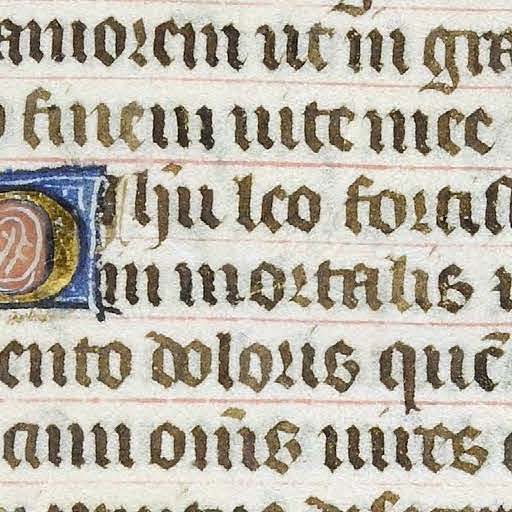 amorem ut in gra
finem uite mee
O ihu leo fortiss
im mortalis
ento doloris quē
cum om̄s uires